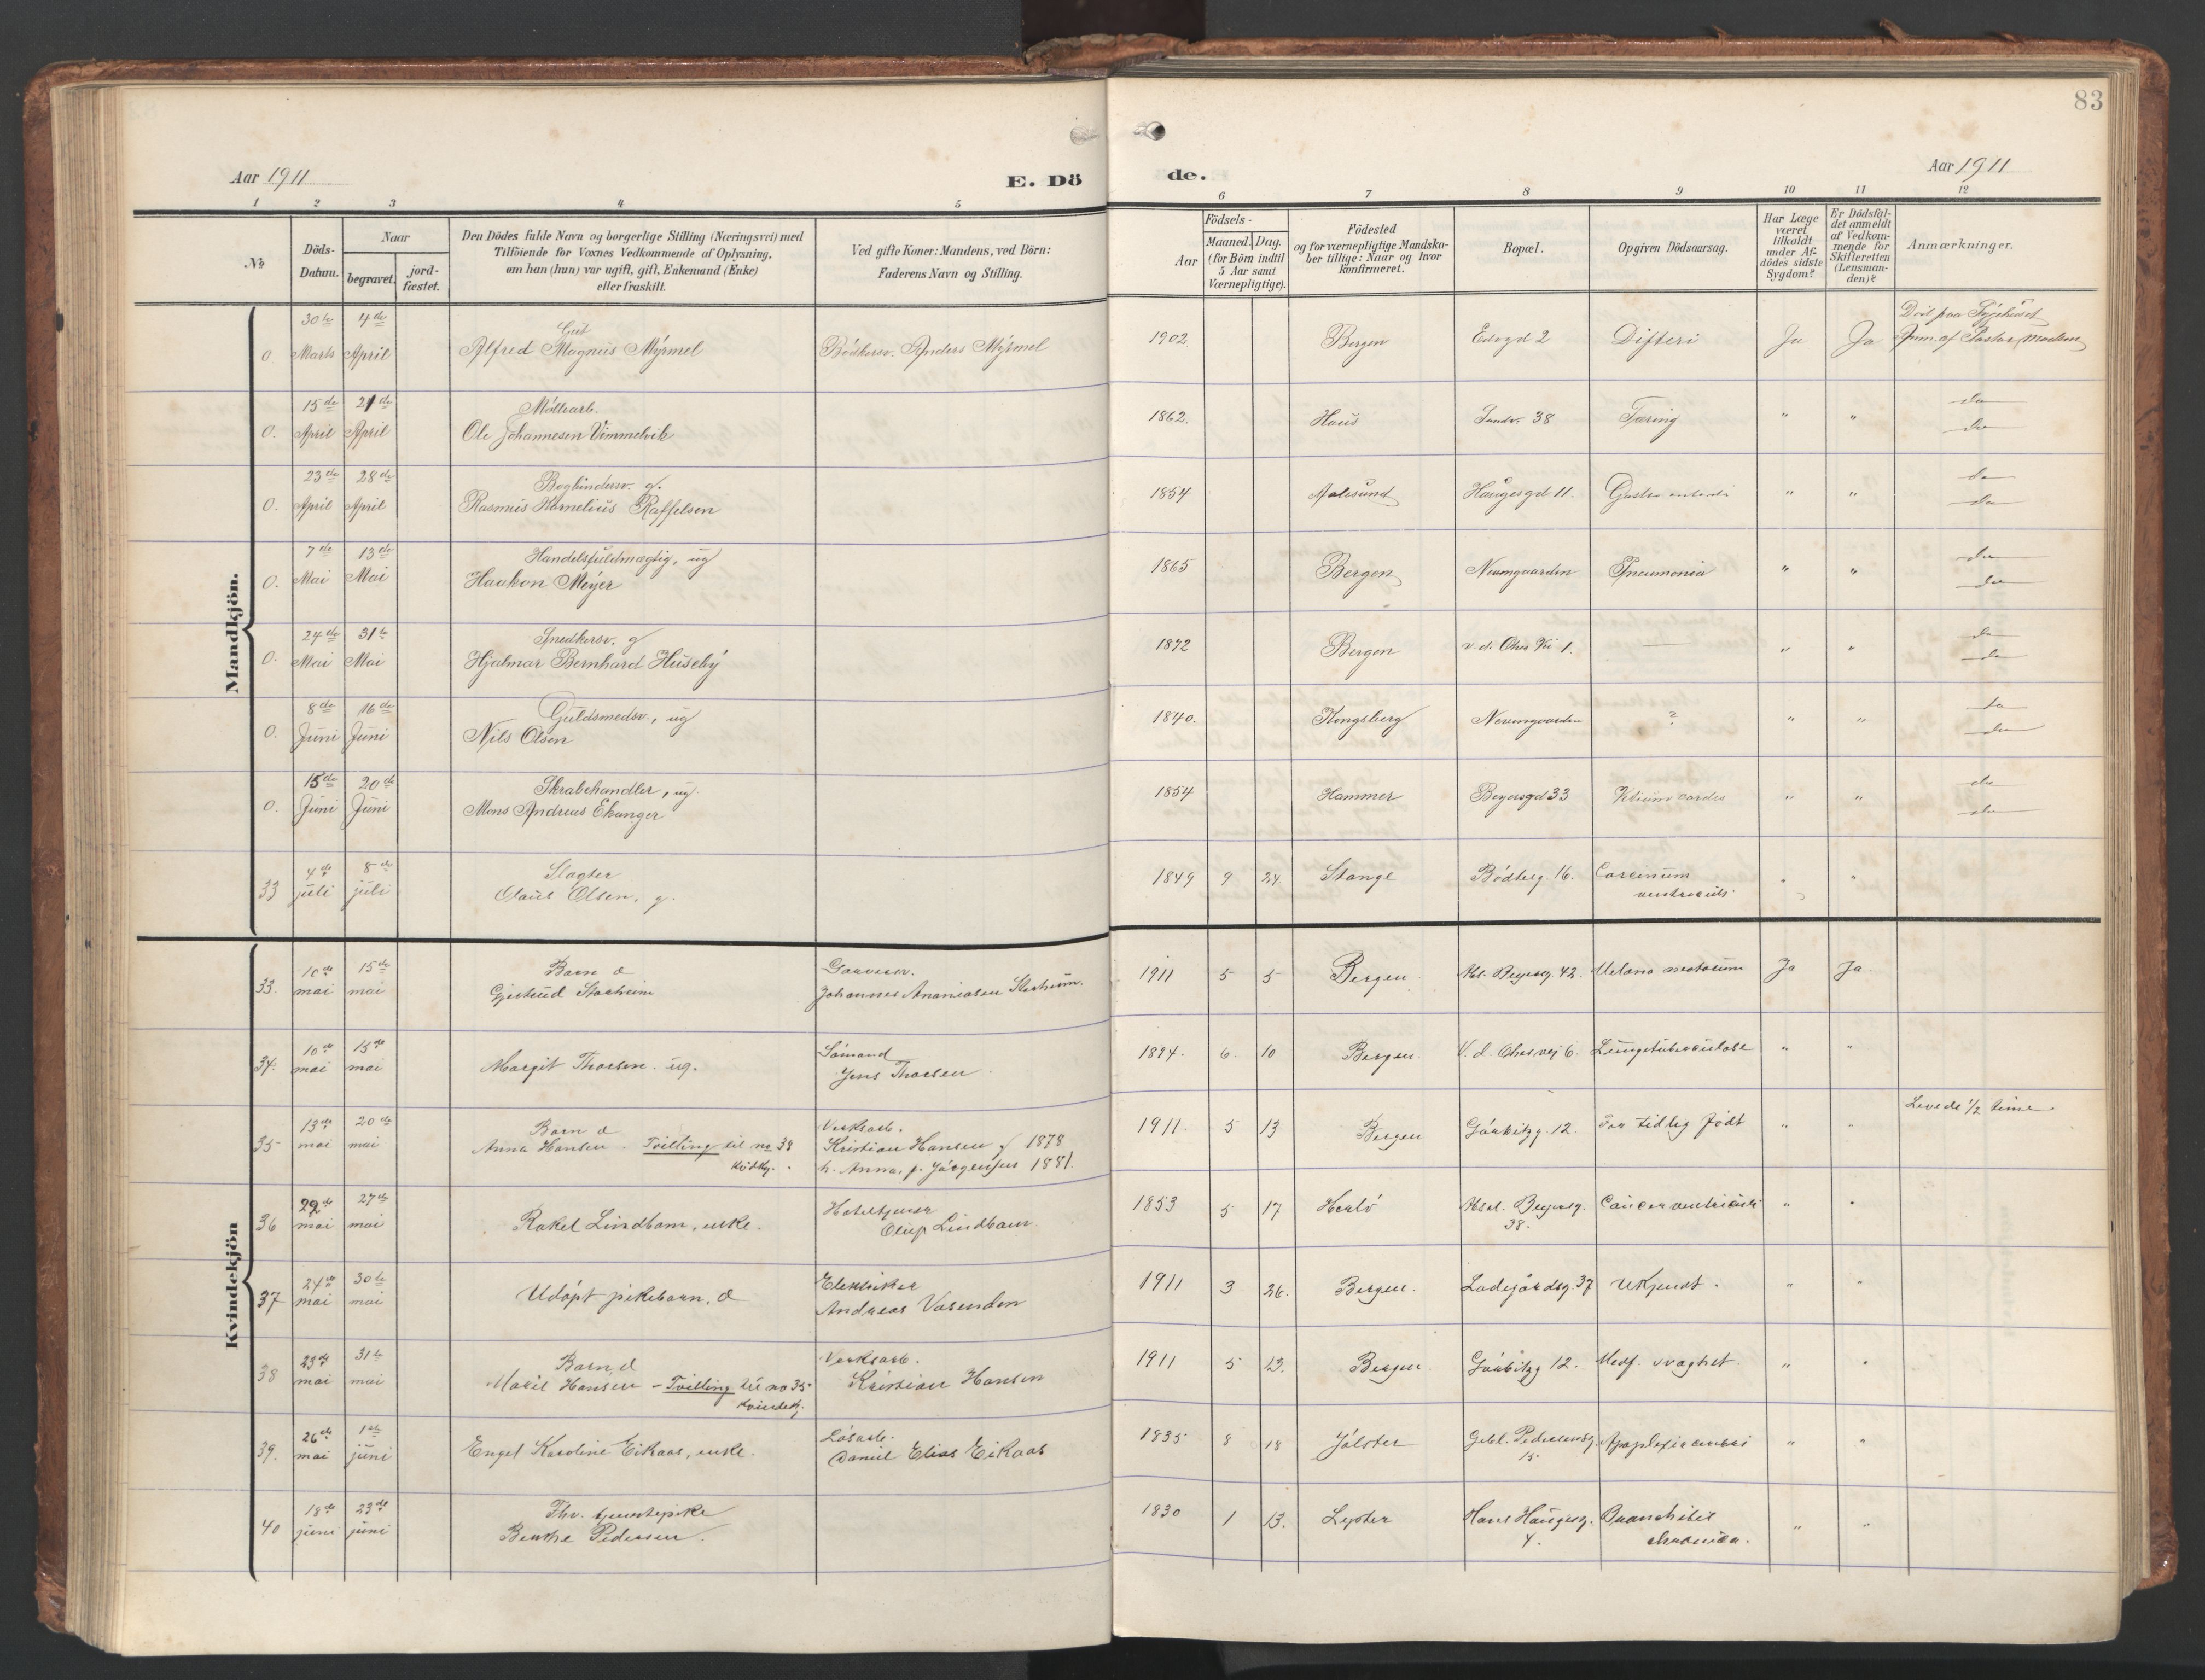 83
Aar 1911
E. Dö
de.
Aar 1911
1 2 3 4 5 6 7 8 9 10 11 12
No
Döds-
Datum.
Naar
begravet.
jord-
fæstet.
Den Dödes fulde Navn og borgerlige Stilling (Næringsvei) med
Tilföiende for Voxnes Vedkommende af Oplysning,
om han (hun) var ugift, gift, Enkemand (Enke)
eller fraskilt.
Ved gifte Koner: Mandens, ved Börn:
Faderens Navn og Stilling.
Födsels-
Aar
Maaned.
Dag.
(for Börn indtil
5 Aar samt
Værnepligtige).
Födested
og for værnepligtige Mandska-
ber tillige: Naar og hvor
konfirmeret.
Bopæl.
Opgiven Dödsaarsag.
Har Læge
været
tilkaldt
under Af-
dödes sidste
Sygdom?
Er Dödsfal-
det anmeldt
af Vedkom-
mende for
Skifteretten
(Lensman-
den)?
Anmærkninger.
Mandkjön.
0. 30te Marts 4de April
Gut
Alfred Magnus Myrmel
Bödkersv. Anders Myrmel
1902 Bergen 2 Difteri Ja Ja
Död paa Sygehuset
Anm. af Pastor
0. 15de April 21de April
Møllearb.
Ole Johannesen Vimmelvik
1862. Haus Sandv. 38 Tæring " "
do
do
0. 23de April 28de April
Bogbindersv. g.
Rasmus Kornelius Raffelsen
1854 Aalesund Haugesgd 11. Gastro " "
do
do
0. 7de Mai 13de Mai
Handelsfuldmægtig, ug
Haakon Meyer
1865 Bergen Neumgaarden Pneumonia " "
do
do
0. 24de Mai 31te Mai
Snedkersv. g
Hjalmar Bernhard Huseby
1872 Bergen v. d. Ohes Vei 1. — " "
do
do
0. 8de Juni 16de Juni
Guldsmedsv., ug
Nils Olsen
1840. Kongsberg Neumgaarden ? " "
do
do
0. 15de Juni 20de Juni
Skrabehandler, ug.
Mons Andreas Ekanger
1854 Hammer Beyersgd 33 Vitium cordis " "
do
do
33 4de juli 8de juli
Slagter
Olaus Olsen, g.
1849 9 24 Stange Bödkerg. 16. Carcinum
ventriculi " "
Kvindekjön
33. 10de mai 15de mai
Barn d
Gjertrud Storheim
Garversv.
Johannes Ananiasen Storheim.
1911 5 5 Bergen. Abs. Beyersg. 42. Melæna neotorum Ja Ja
34. 10de mai 15de mai
Margit Thorsen. ug.
Sömand
Jens Thorsen
1894. 6. 10 Bergen. V. d. Ohes vej 6. Lungetuberculose " "
35 13de mai 20de mai
Barn d
Anna Hansen. Tvilling til no 38
kvindkj.
Verksarb.
Kristian Hansen f 1878
h. Anna, f. Jörgensen 1881.
1911. 5 13 Bergen Görbitzg. 12. For tidlig födt " "
Levede 1/2 time.
36 22de mai 27de mai
Rakel Lindbom, enke.
Hoteltjener
Oluf Lindbom.
1853 5 17 Herlö Absal. Beyersg.
38. Cancer ventriculi " "
37 24de mai 30te mai
Udöpt pikebarn, d
Elektriker
Andreas Vasenden
1911 3 26. Bergen. Ladegårdsg. 37 Ukjendt. " "
38 23de mai 31te mai
Barn, d
Marie Hansen – Tvilling til no 35
kvindekj.
Verksarb.
Kristian Hansen
1911 5 13. Bergen. Görbitzg 12. Medf. svaghet. " "
39. 26de mai 1ste juni
Engel Karoline Eikaas, enke.
Lösarb.
Daniel Elias Eikaas
1835 8 18 Jölster Gabl. Pedersensg.
15. Apoplexia cerebri " "
40 18de juni 23de juni
Fhv. tjenestepike
Benthe Pedersen.
1830 1 13. Lyster Hans Haugesg.
4. Bronchitis
chronica. " "